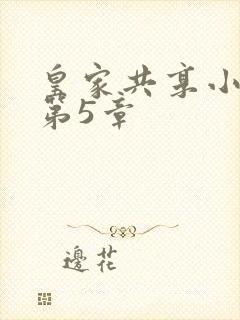 皇家共享小
第5章
邊花